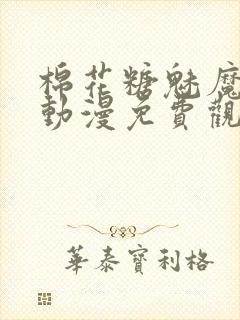 棉花糖魅魔
動漫免費觀
華泰寶利格